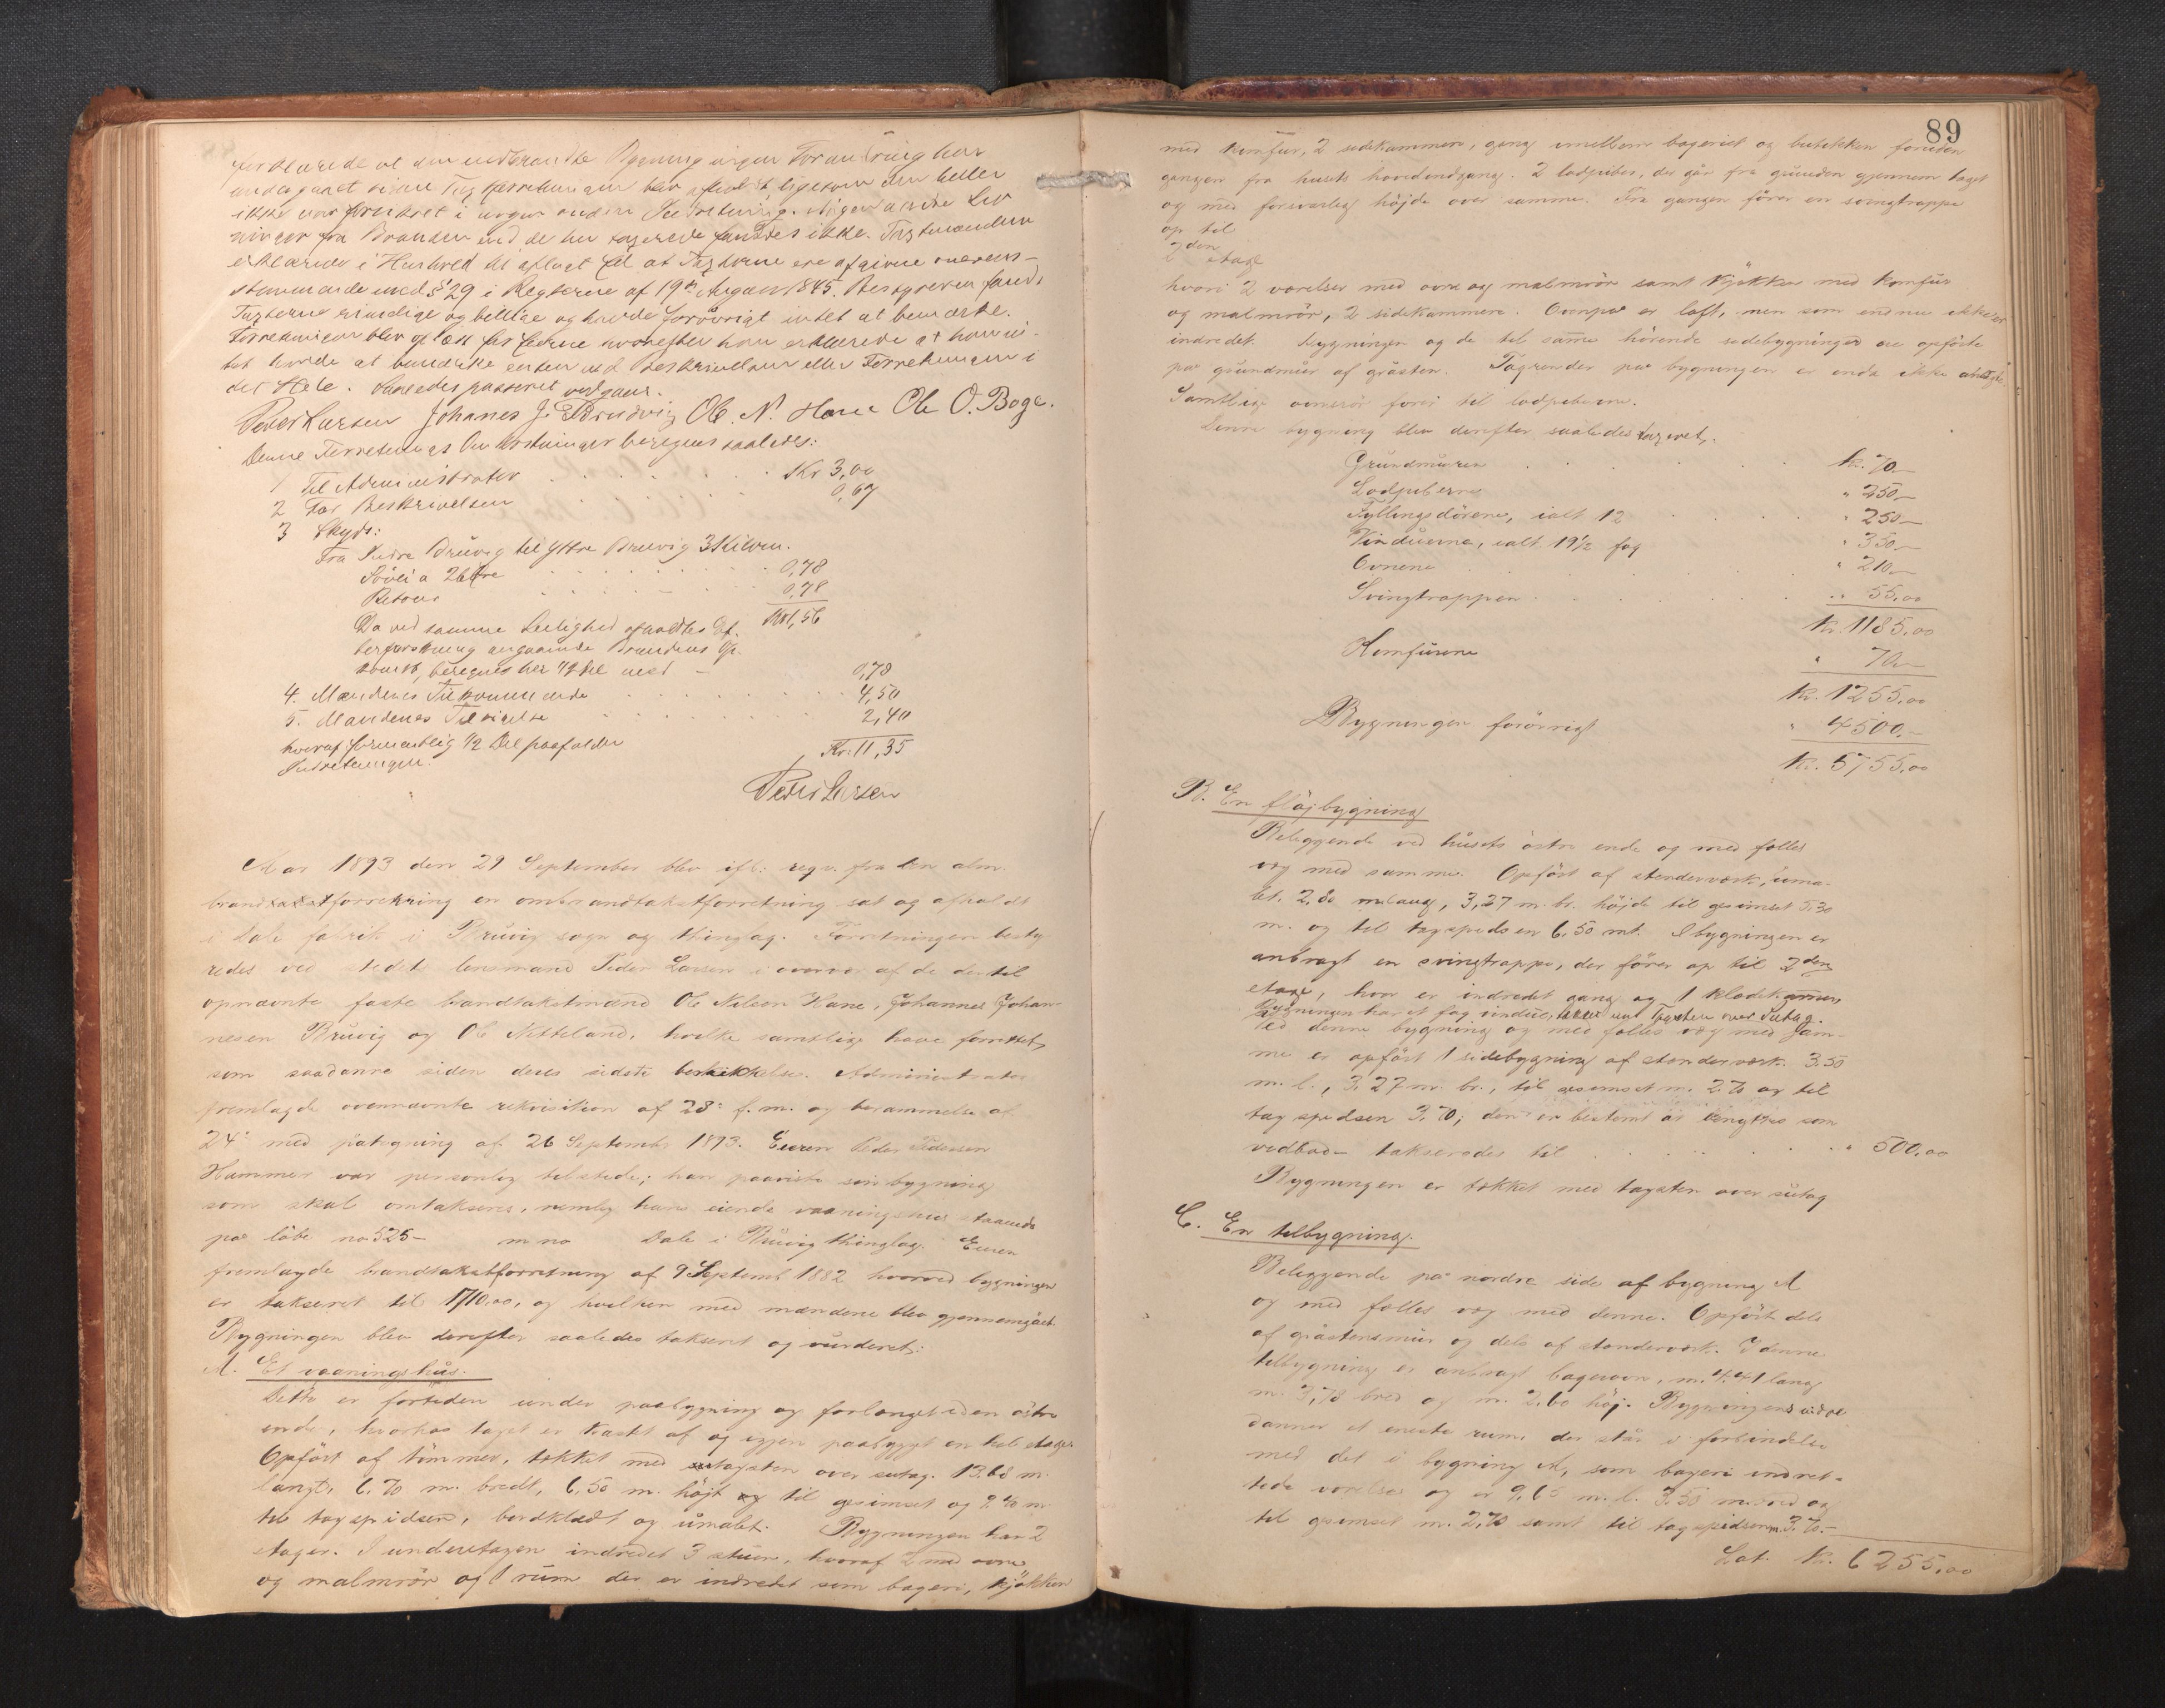 forklarede at den nedbrændte Bygning ingen Forandring har
undergaaet siden Taxtforretningen blev afholdt ligesom den heller
ikke var forsikret i nogen anden Indretning. Nogen andre Lev
ninger fra Branden end de her taxerede fandtes ikke. Taxtmændene
erklærede i Henhold til aflagt Ed at Taxterne ere afgivne overens-
stemmende med § 29 i Reglerne af 19de August 1845. Bestyreren fandt
Taxterne rimelige og billige og havde forövrigt intet at bemærke.
Forretningen blev oplæst for Eierne hvorefter han erklærede at han in-
tet havde at bemærke enten ved Beskrivelsen eller Forretningen i
det Hele. Saaledes passeret vedgaaes.
Peder Larsen Johanes J. Bruvig Ole N. Hane Ole O. Boge.
Denne Forretnings Omkostninger beregnes saaledes:
1 Til Administrator Kr 3,00
2 For Beskrivelsen 0,67
3 Skyds:
Fra Indre Bruvig til Ytre Bruvig 3 Kilom.
Sövei a 26 Öre 0,78
Retour 0,78
Kr 1,56
Da ved samme Leilighed afholdtes Ef-
terforskning angaaende Brandens Op-
komst, beregnes her 1/2 Del med - 0,78
4. Mændenes Tilkommende 4,50
5. Mændenes Tilsigelse 2,40
Kr: 11,35
hvoraf formentlig 1/2 Del paafalder
Indretningen.
Peder Larsen
Aar 1893 den 29 September blev ifl: reqv. fra den alm.
brandforsikring en ombrandtakstforretning sat og afholdt
i Dale fabrik i Bruvig sogn og thinglag. Forretningen besty-
redes ved stedets lensmand Peder Larsen i overvær af de dertil
opnævnte faste brandtakstmænd Ole Nilsen Hane, Johannes Johan-
nesen Bruvig og Ole Netteland, hvilke samtlige have forrettet
som saadanne siden deres sidste beskikkelse. Administrator
fremlagde ovennævnte rekvisition af 23de f.m. og berammelse af
24de med påtegning af 26 September 1893. Eieren Peder Pedersen
Hammer var personlig tilstede; han paaviste sin bygning
som skal omtakseres, nemlig hans eiende vaaningshus staaende
på löbe no 525- m no Dale i Bruvig thinglag. Eieren
fremlagde brandtakstforretning af 9 September 1882 hvorved bygningen
er takseret til 1710,00, og hvilken med mændene blev gjennemgået
Bygningen blev derefter saaledes takseret og vurderet:
A. Et vaaningshus.
Dette er fortiden under paabygning og forlænget i den östre
ende, hvorhos taget er kastet af og igjen paabygget en hel etage
Opfört af tömmer, tækket med tagsten over sutag. 13.68 m.
langt, 6.70 m. bredt, 6,50 m. höjt til gesimset og 9.40 m.
til tagspidsen, bordklædt og umalet. Bygningen har 2
etager. I underetagen indredet 3 stuer, hvoraf 2 med ovne
og malmrör og 1 rum der er indredet som bageri, kjökken
89
med komfur, 2 sidekammere, gang imellem bageriet og butikken foruden
gangen fra husets hovedindgang. 2 lodpiber, der går fra grunden gjennem taget
og med forsvarlig höjde over samme. Fra gangen förer en svingtrappe
op til
2den etage
hvori 2 værelser med ovne og malmrör samt kjökken med komfur
og malmrör, 2 sidekammere. Ovenpå er loft, men som endnu ikke er
indredet. Bygningen og de til samme hörende sidebygninger er opförte
på grundmur af gråsten. Tagrender på bygningen er enda ikke anbragte.
Samtlige ovnsrör förer til lodpiberne.
Denne bygning blev derefter saaledes taxeret,:
Grundmuren kr. 70.—
Lodpiberne " 250.—
Fyllingsdörene, ialt 12 " 250.—
Vinduerne, ialt 19 1/2 fag " 350.—
Ovnene " 210.—
Svingtrappen " 55,00
Kr. 1185,00
Komfurene " 70.—
Kr. 1255,00
Bygningen forövrigt " 4500.—
Kr. 5755,00
B. En flöjbygning
Beliggende ved husets östre ende og med fælles
væg med samme. Opfört af stenderværk, uma-
let. 2,80 m lang, 3,27 m. br. höjde til gesimset 5.30
m. og til tagspidsen 6,50 mt. I bygningen er
anbragt en svingtrappe, der förer op til 2den
etage, hvor er indredet gang og 1 klædekammer,
Bygningen har et fag vindue, tækket med Tagsten over Sutag.
Ved denne bygning og med fælles væg med sam-
me er opfört 1 sidebygning af stenderværk. 3.50
m. l., 3.27 m. br., til gesimset m. 2.70 og til
tagspidsen 3.70; den er bestemt at benyttes som
vedbod - takseredes til " 500,00
Bygningen er tækket med tagsten over sutag
C. En tilbygning.
Beliggende på nordre side af bygning A
og med fælles væg med denne. Opfört dels
af gråstensmur og dels af stenderværk. I denne
tilbygning er anbragt bagerovn, m. 4.41 lang
m. 3,78 bred og m. 2.60 höj. Bygningens indre
danner et eneste rum, der står i forbindelse
med det i bygning A, som bageri indret-
tede værelse og er 9,65 m. l. 3.50 m. bred og
til gesimset m. 2,70 samt til tagspidsen m 3.70.-
Lat. Kr. 6255,00